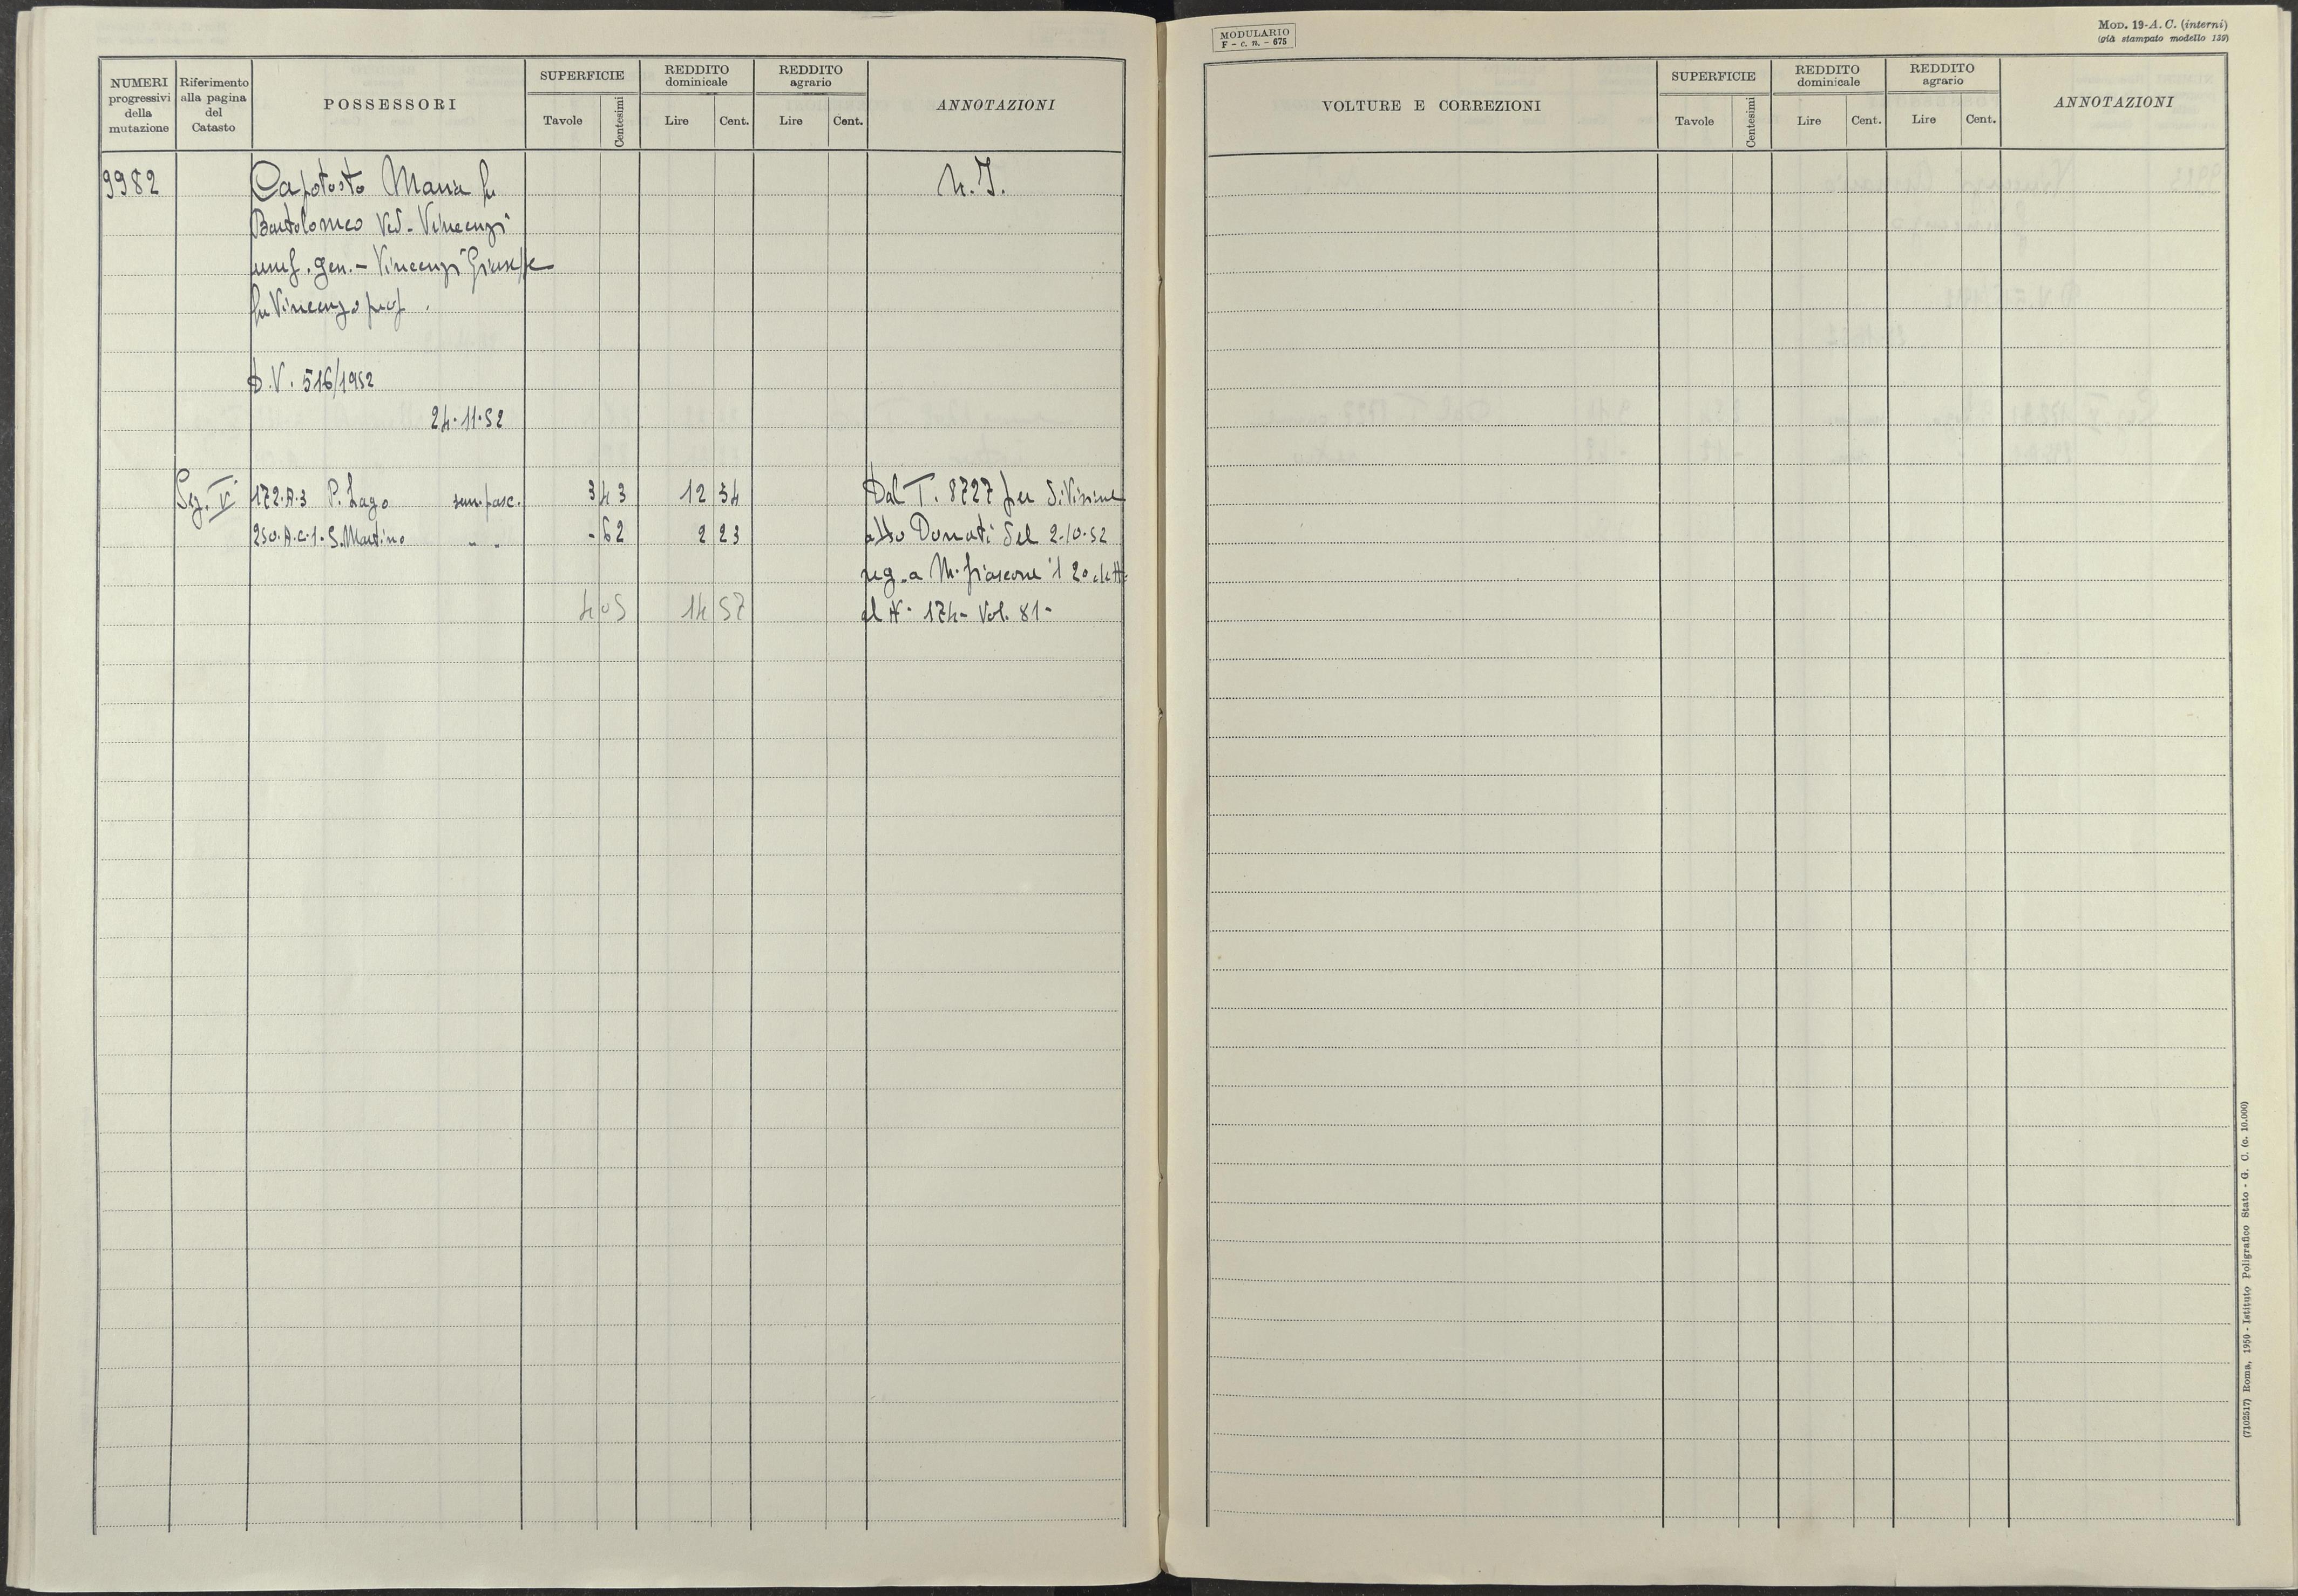 NUMERI progressivi della mutazione
Riferimento alla pagina del Catasto
POSSESSORI
SUPERFICIE
Tavole
Centesimi
REDDITO dominicale
Lire
Cent.
REDDITO agrario
Lire
Cent.
ANNOTAZIONI
9982
Capotosto Maria fu
Bartolomeo Ved. Vincenzi
usuf. gen. - Vincenzi Giuseppe
fu Vincenzo prop.
N. I.
D.V. 516/1952
24.11.52
Sez. V 172.A.3 P. Lago sem. pasc. 3 43 12 34 Dal T. 8727 per divisione
250.A.c.1. S. Martino " " - 62 2 23 atto Donati del 2-10-52
reg. a M. fiascone il 20 detto
4 05 14 57 al N. 174 - Vol. 81 -
MODULARIO
F - c. n. - 675
MOD. 19-A. C. (interni)
(già stampato modello 139)
VOLTURE E CORREZIONI
SUPERFICIE
Tavole
Centesimi
REDDITO dominicale
Lire
Cent.
REDDITO agrario
Lire
Cent.
ANNOTAZIONI
(7102517) Roma, 1950 - Istituto Poligrafico Stato - G. C. (c. 10.000)